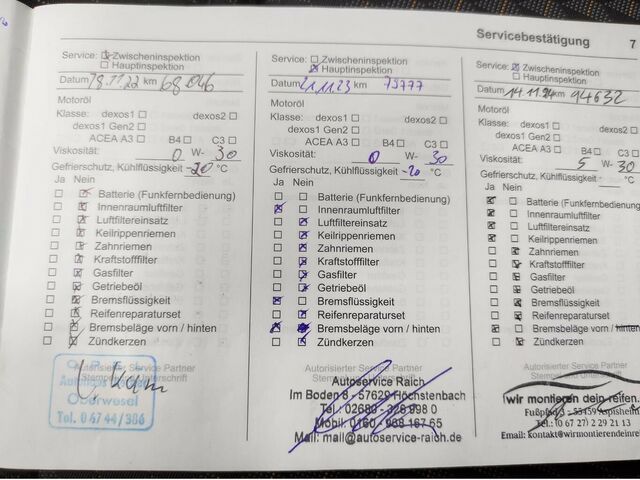 Servicebestätigung 7
Service: Zwischeninspektion
Hauptinspektion
Datum 18.11.22 km 68046
Motoröl
Klasse: dexos1 dexos2
dexos1 Gen2
ACEA A3 B4 C3
Viskosität: 0 W- 30
Gefrierschutz, Kühlflüssigkeit -20 °C
Ja Nein
Batterie (Funkfernbedienung)
Innenraumluftfilter
Luftfiltereinsatz
Keilrippenriemen
Zahnriemen
Kraftstofffilter
Gasfilter
Getriebeöl
Bremsflüssigkeit
Reifenreparaturset
Bremsbeläge vorn / hinten
Zündkerzen
Autorisierter Service Partner
Oberwesel
Tel. 0 67 44 / 386
Service: Zwischeninspektion
Hauptinspektion
Datum 21.11.23 km 79777
Motoröl
Klasse: dexos1 dexos2
dexos1 Gen2
ACEA A3 B4 C3
Viskosität: 0 W- 30
Gefrierschutz, Kühlflüssigkeit -20 °C
Ja Nein
Batterie (Funkfernbedienung)
Innenraumluftfilter
Luftfiltereinsatz
Keilrippenriemen
Zahnriemen
Kraftstofffilter
Gasfilter
Getriebeöl
Bremsflüssigkeit
Reifenreparaturset
Bremsbeläge vorn / hinten
Zündkerzen
Autorisierter Service Partner
Autoservice Raich
Im Boden 8 - 57629 Höchstenbach
Tel. 02680 - 328 998 0
Mobil: 0160 - 988 167 65
Mail: mail@autoservice-raich.de
Service: Zwischeninspektion
Hauptinspektion
Datum 14.11.24 km 94632
Motoröl
Klasse: dexos1 dexos2
dexos1 Gen2
ACEA A3 B4 C3
Viskosität: 5 W- 30
Gefrierschutz, Kühlflüssigkeit °C
Ja Nein
Batterie (Funkfernbedienung)
Innenraumluftfilter
Luftfiltereinsatz
Keilrippenriemen
Zahnriemen
Kraftstofffilter
Gasfilter
Getriebeöl
Bremsflüssigkeit
Reifenreparaturset
Bremsbeläge vorn / hinten
Zündkerzen
Autorisierter Service Partner
wir montieren dein reifen.
Tel.: (0 67 27) 2 29 21 13
Email: kontakt@wirmontierendeinrei